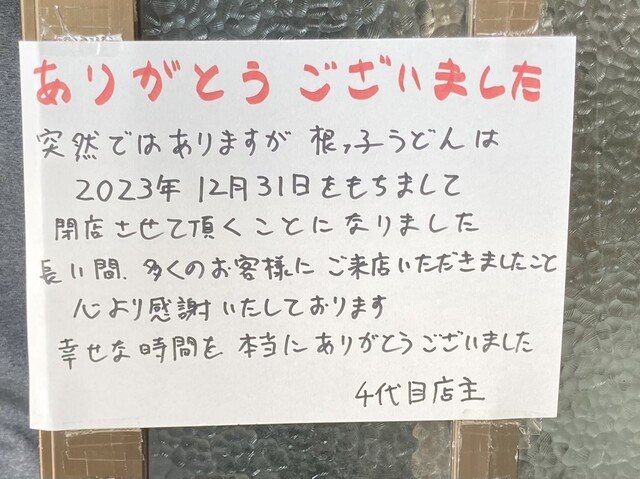 ありがとうございました
突然ではありますが 根っ子うどんは
2023年 12月31日をもちまして
閉店させて頂くことになりました
長い間、多くのお客様に ご来店いただきましたこと
心より感謝いたしております
幸せな時間を 本当にありがとうございました
4代目店主